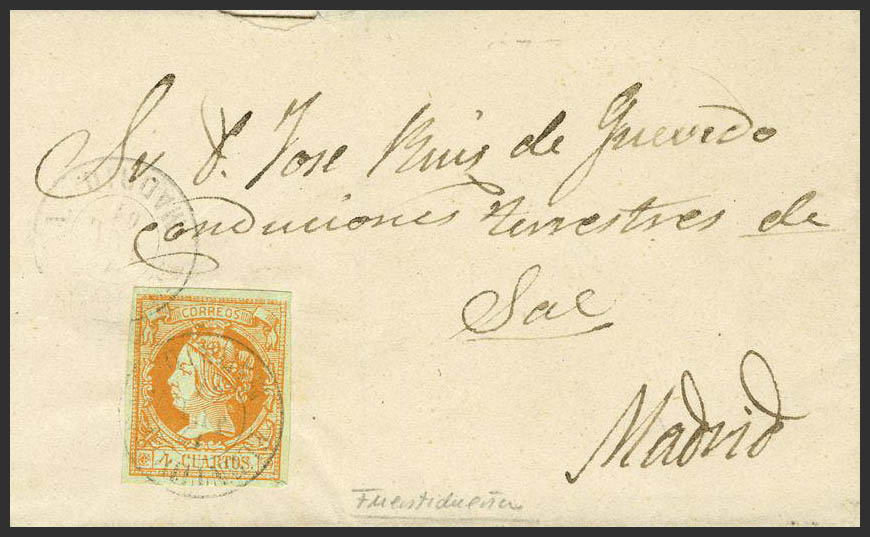 Sr. D. Jose Ruis de Quevedo
conduciones terrestres de
Sal
Madrid
MADRID
CORREOS
4 CUARTOS.
Fuentidueña